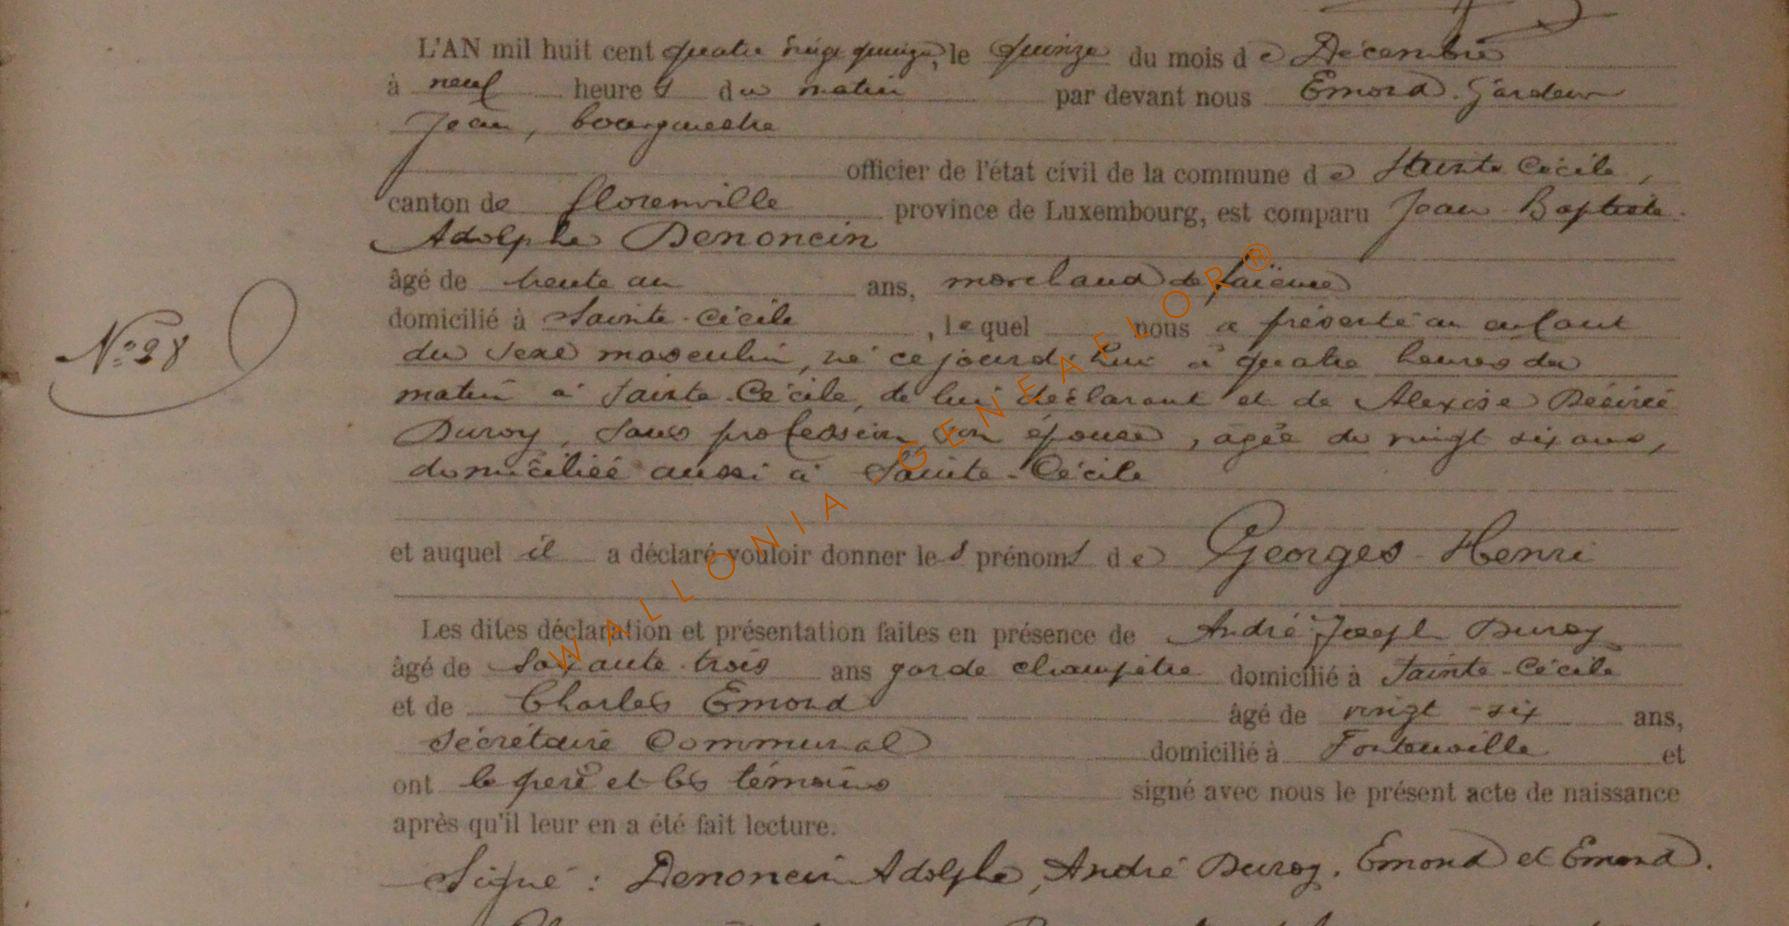 L'AN mil huit cent quatre vingt quinze, le quinze du mois de Décembre
à neuf heures du matin par devant nous Emond
Jean, bourgmestre
officier de l'état civil de la commune de Sainte Cécile,
canton de Florenville province de Luxembourg, est comparu Jean-Baptiste
Adolphe Denoncin
âgé de trente un ans, marchand de faïence
domicilié à Sainte-Cécile, lequel nous a présenté un enfant
N° 28
du sexe masculin, né ce jourd'hui à quatre heures du
matin à Sainte-Cécile, de lui déclarant et de Alexise Désirée
Duroy, sans profession, son épouse, âgée de vingt six ans,
domiciliée aussi à Sainte-Cécile
et auquel il a déclaré vouloir donner les prénoms de Georges-Henri
Les dites déclaration et présentation faites en présence de André Joseph Duroy
âgé de soixante-trois ans garde champêtre domicilié à Sainte-Cécile
et de Charles Emond âgé de vingt-six ans,
sécrétaire communal domicilié à Fontenoille et
ont le père et les témoins signé avec nous le présent acte de naissance
après qu'il leur en a été fait lecture.
Signé : Denoncin Adolphe, André Duroy, Emond et Emond.
WALLONIA - GENEAFLOR®